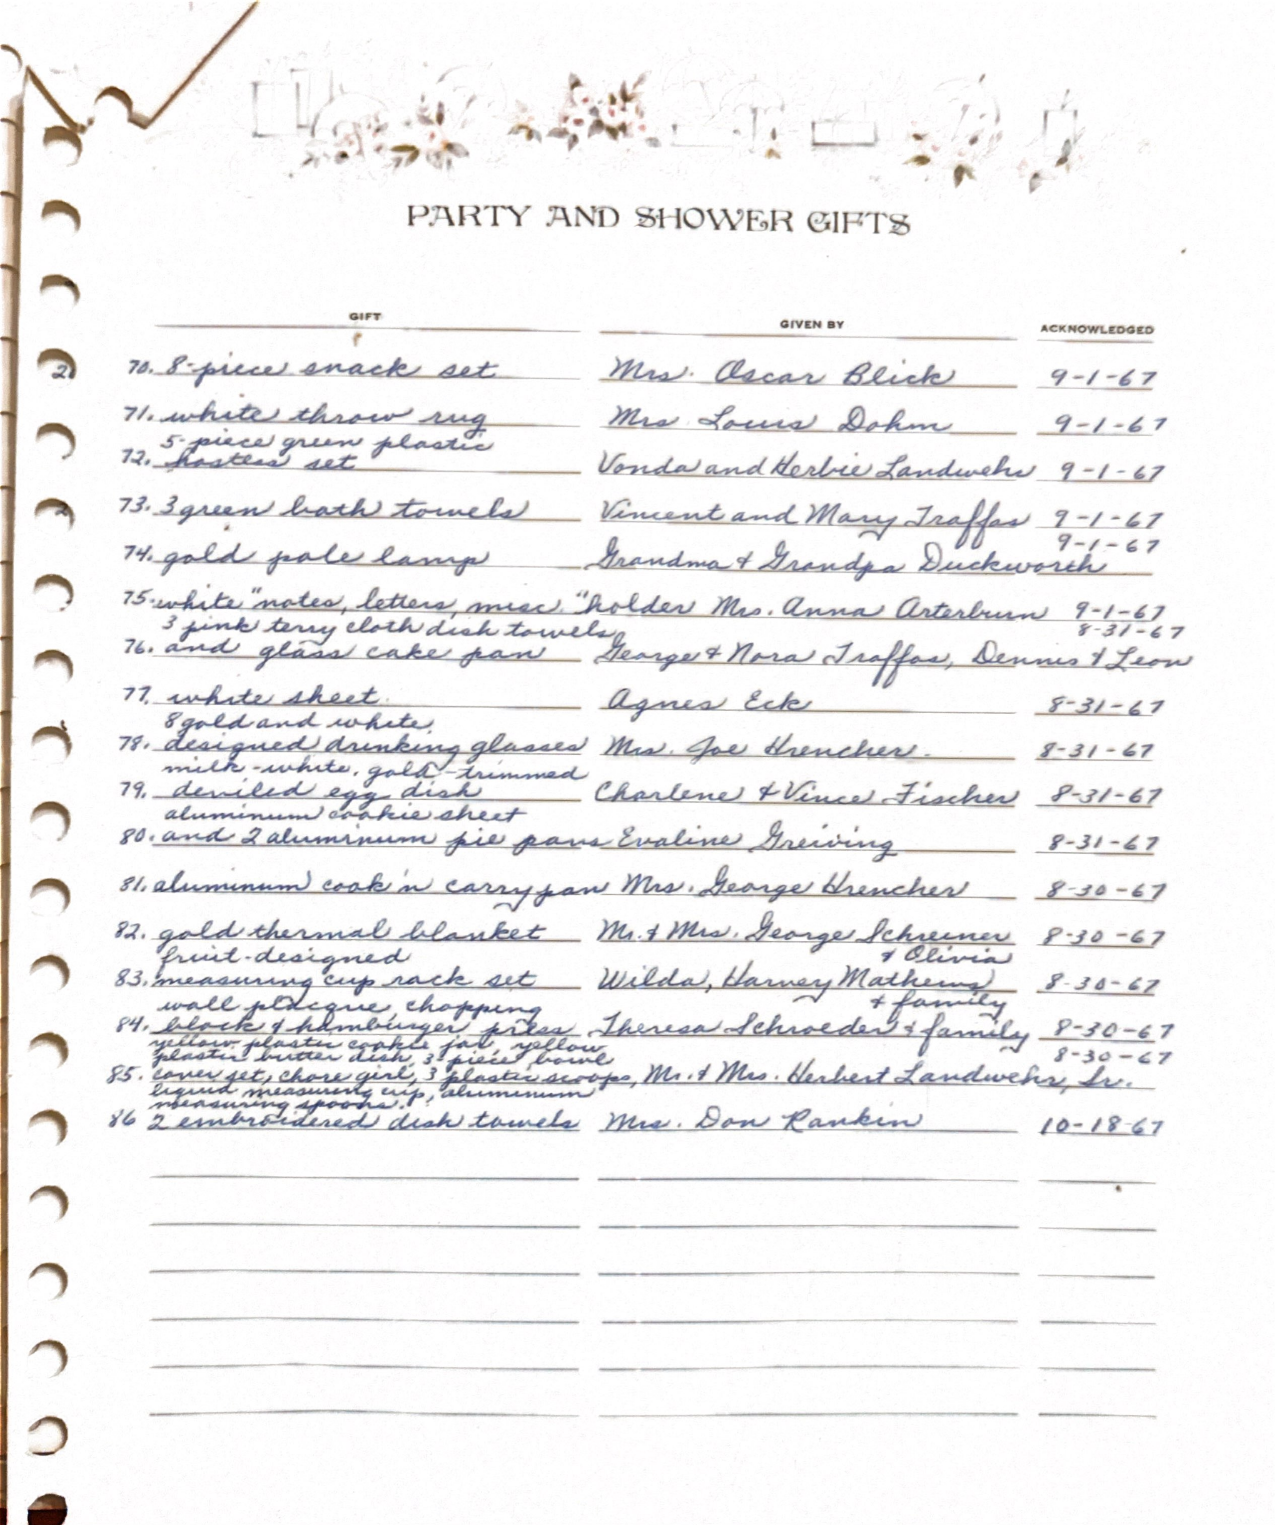 PARTY AND SHOWER GIFTS
GIFT GIVEN BY ACKNOWLEDGED
70. 8-piece snack set Mrs. Oscar Blick 9-1-67
71. white throw rug Mrs. Louis Dohm 9-1-67
5-piece green plastic
72. hostess set Vonda and Herbie Landwehr 9-1-67
73. 3 green bath towels Vincent and Mary Traffas 9-1-67
9-1-67
74. gold pole lamp Grandma & Grandpa Duckworth
75. white "notes, letters, misc." holder Mrs. Anna Arterburn 9-1-67
3 pink terry cloth dish towels 8-31-67
76. and glass cake pan George & Nora Traffas, Dennis & Leon
77. white sheet Agnes Eck 8-31-67
8 gold and white
78. designed drinking glasses Mrs. Joe Hrencher 8-31-67
milk-white, gold-trimmed
79. deviled egg dish Charlene & Vince Fischer 8-31-67
aluminum cookie sheet
80. and 2 aluminum pie pans Evaline Greiving 8-31-67
81. aluminum cook 'n carry pan Mrs. George Hrencher 8-30-67
82. gold thermal blanket Mr. & Mrs. George Schreiner 8-30-67
fruit-designed & Olivia
83. measuring cup rack set Wilda, Harvey Mathews 8-30-67
wall placque, chopping & family
84. block & hamburger press Theresa Schroeder & family 8-30-67
yellow plastic cookie jar, yellow
plastic butter dish, 3 piece bowl 8-30-67
85. cover set, chore girl, 3 plastic scoops, Mr. & Mrs. Herbert Landwehr, Sr.
liquid measuring cup, aluminum
measuring spoons.
86 2 embroidered dish towels Mrs. Don Rankin 10-18-67